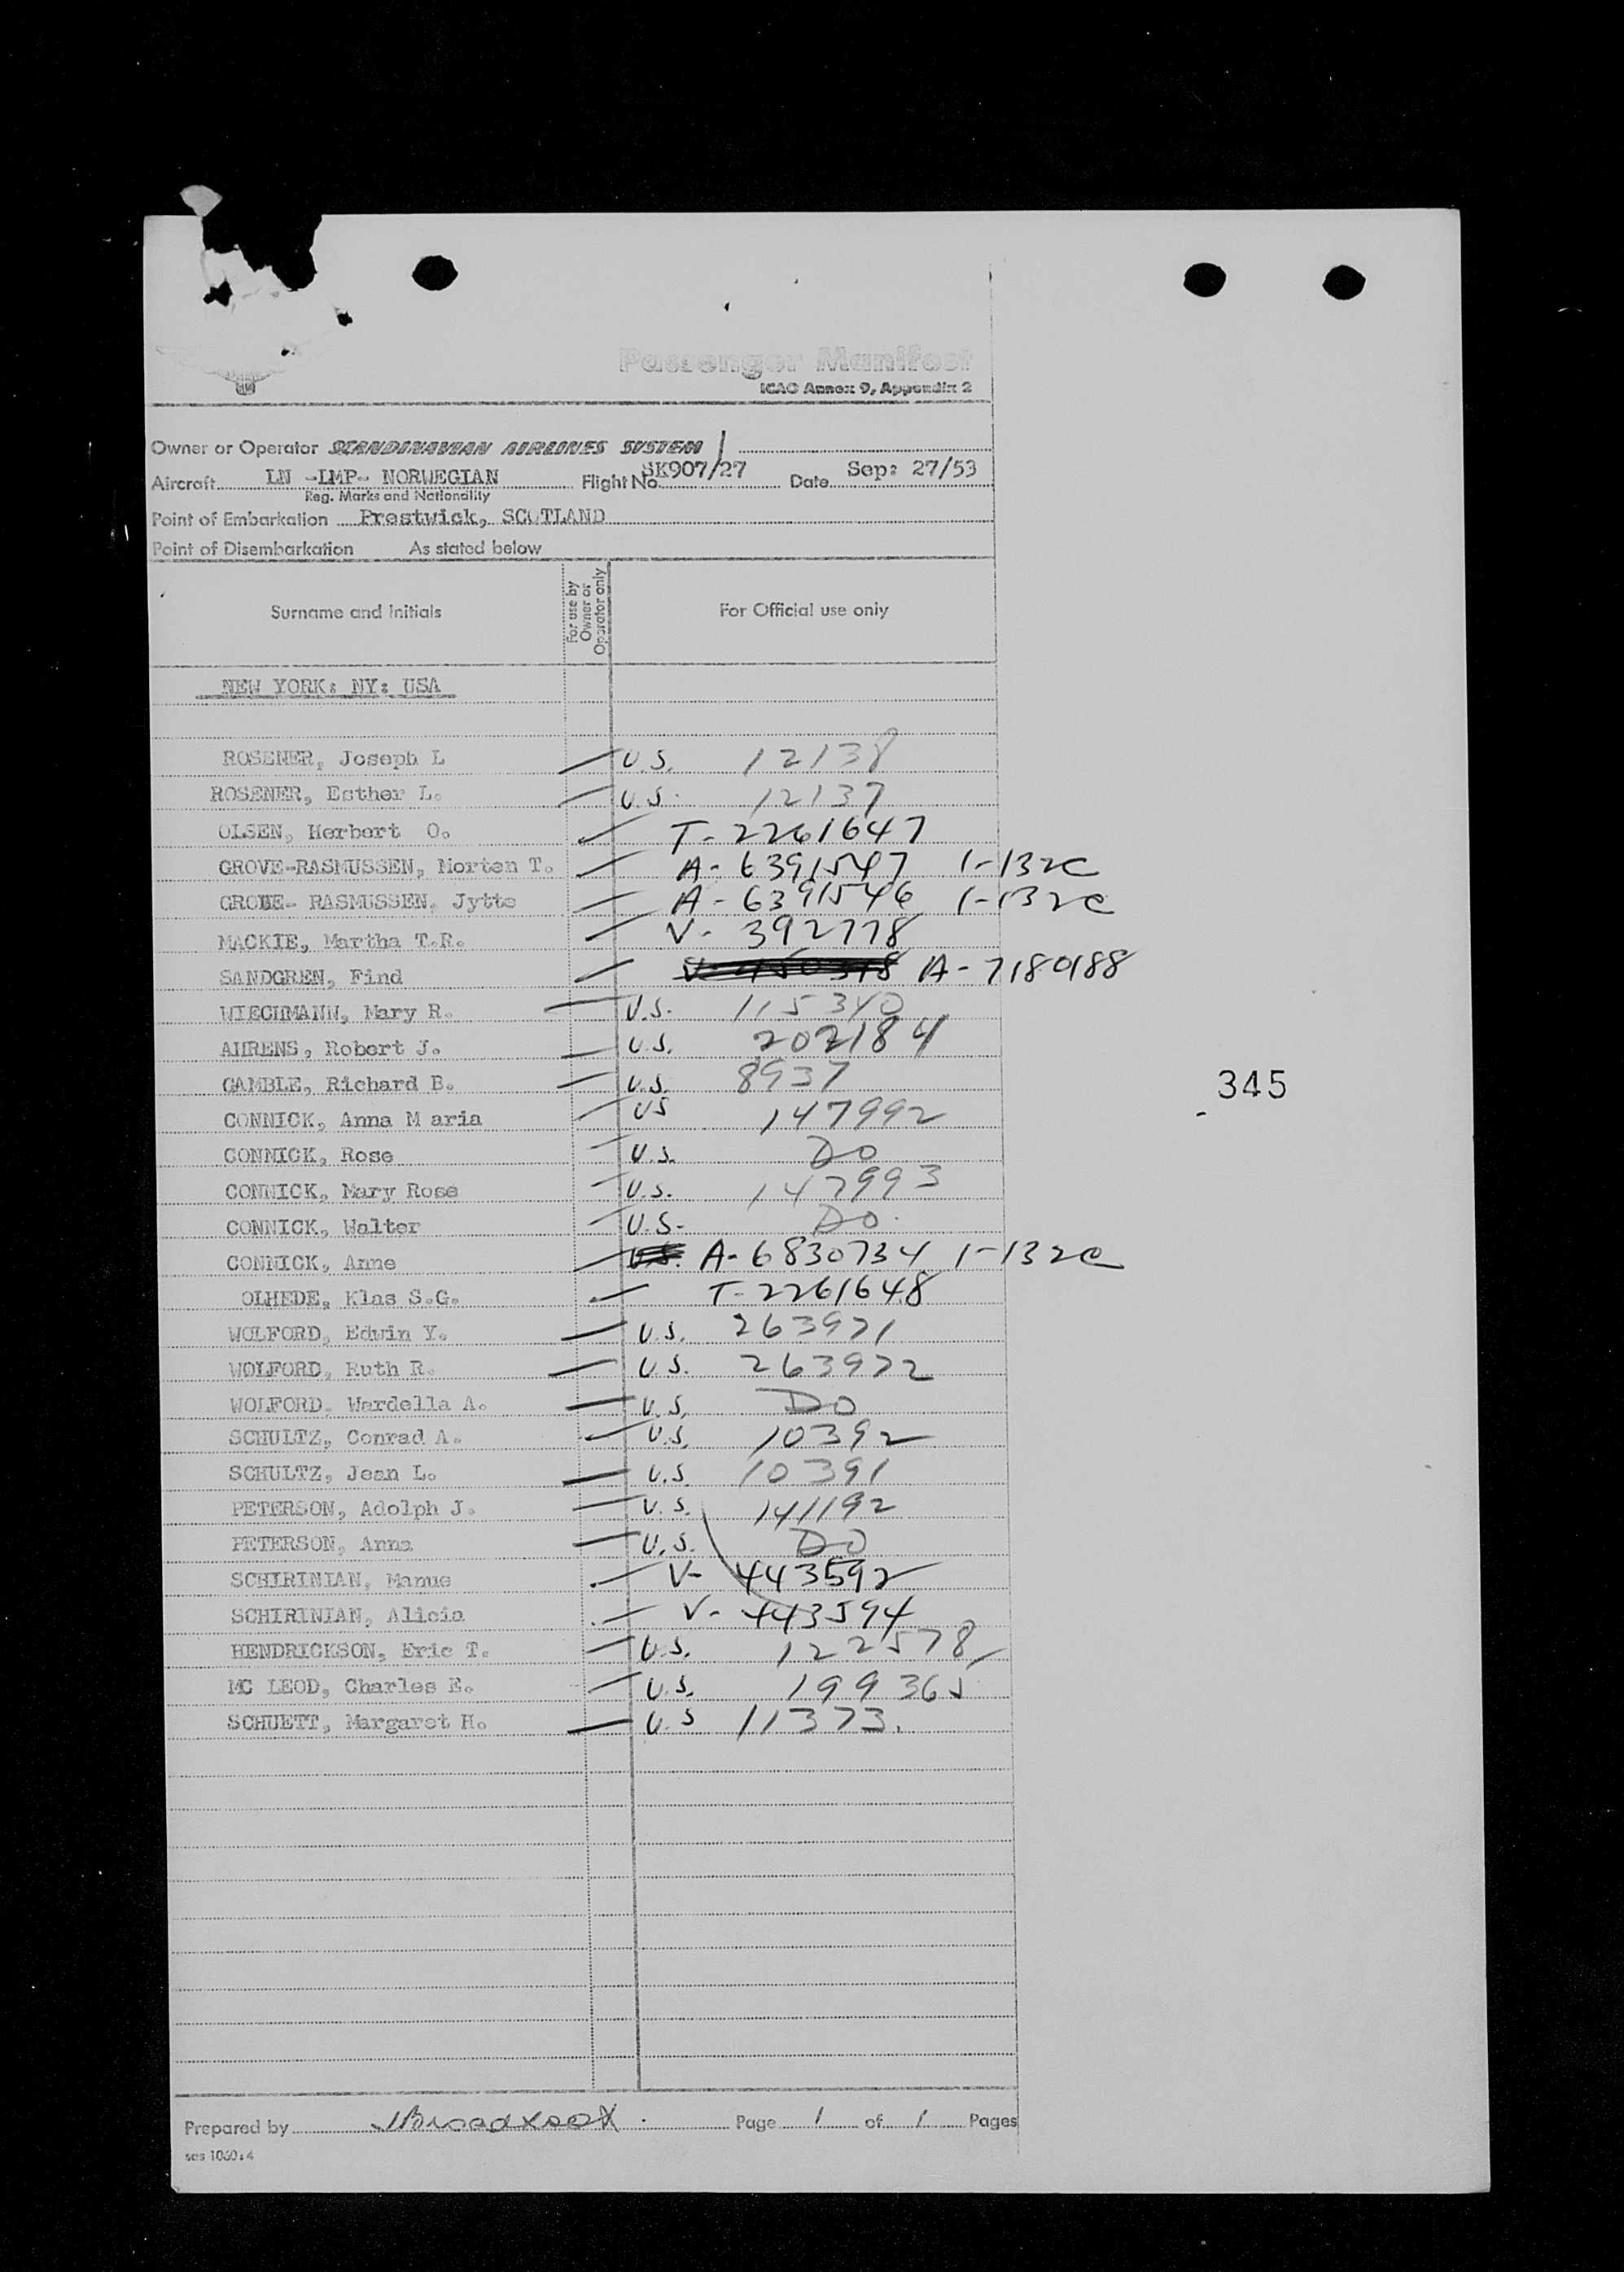 Passenger Manifest
ICAO Annex 9, Appendix 2
Owner or Operator SCANDINAVIAN AIRLINES SYSTEM
Aircraft LN -LMP- NORWEGIAN Flight No SK907/27 Date Sep: 27/53
Reg. Marks and Nationality
Point of Embarkation Prestwick, SCOTLAND
Point of Disembarkation As stated below
Surname and Initials For use by Owner or Operator only For Official use only
NEW YORK: NY: USA
ROSENER, Joseph L U.S. 12138
ROSENER, Esther L. U.S. 12137
OLSEN, Herbert O. T-2261647
GROVE-RASMUSSEN, Morten T. A-6391547 1-132C
GROVE- RASMUSSEN, Jytte A-6391546 1-132C
MACKIE, Martha T.R. V-392778
SANDGREN, Find A-7180188
WIECHMANN, Mary R. U.S. 115340
AHRENS, Robert J. U.S. 202184
GAMBLE, Richard B. U.S. 8937
345
CONNICK, Anna M aria US 147992
CONNICK, Rose U.S. DO
CONNICK, Mary Rose U.S. 147993
CONNICK, Walter U.S. DO.
CONNICK, Anne U.S. A-6830734 1-132C
OLHEDE, Klas S.G. T-2261648
WOLFORD, Edwin Y. U.S. 263971
WOLFORD, Ruth R. U.S. 263972
WOLFORD, Wardella A. U.S. DO
SCHULTZ, Conrad A. U.S. 10392
SCHULTZ, Jean L. U.S. 10391
PETERSON, Adolph J. U.S. 141192
PETERSON, Anna U.S. DO
SCHIRINIAN, Manue V-443592
SCHIRINIAN, Alicia V-443594
HENDRICKSON, Eric T. U.S. 122578
MC LEOD, Charles E. U.S. 199365
SCHUETT, Margaret H. U.S 11373.
Prepared by Page 1 of 1 Pages
sas 1060:4